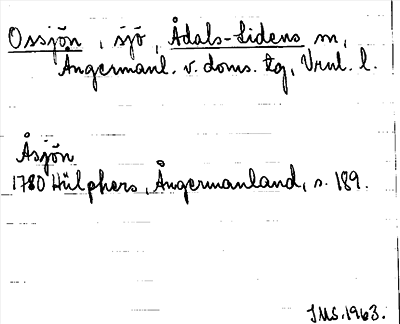 Ossjön, sjö, Ådals-Lidens sn,
Ångermanl. v. doms. tg, Vrnl. l.
Åsjön
1780 Hülphers, Ångermanland, s. 189.
IMS.1963.